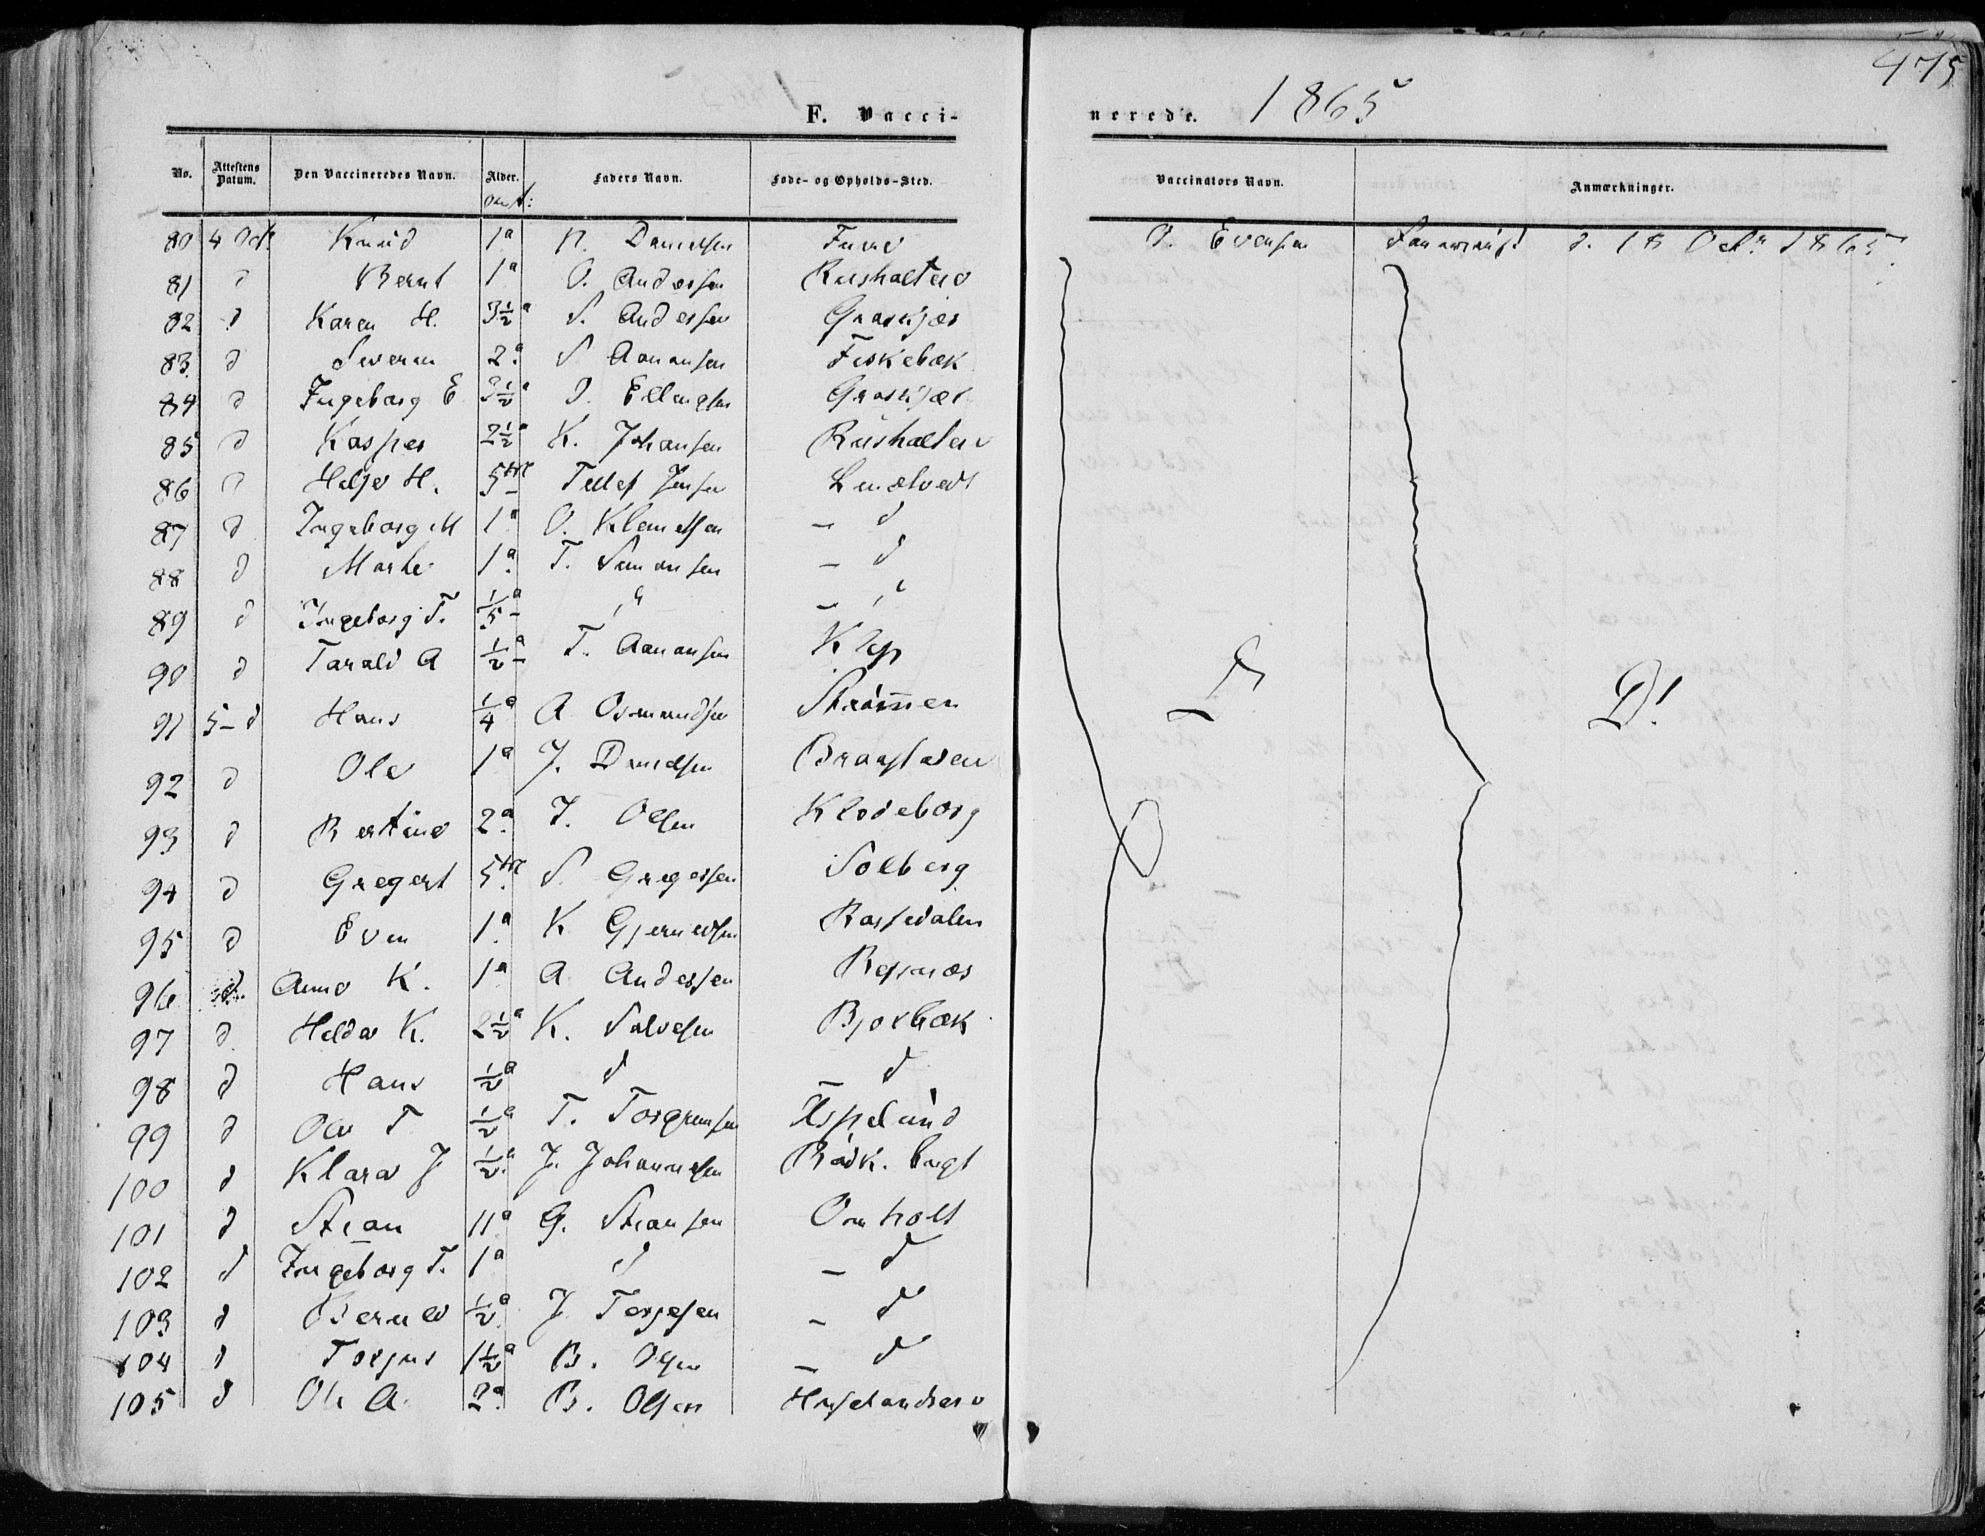 475
F. Vacci-
nerede. 1865
No. Attestens Datum. Den Vaccineredes Navn. Alder. Faders Navn. Føde- og Opholds-Sted. Vaccinators Navn. Anmærkninger.
80 4 Oct. Knud 1a N. Danielsen O. Evensen d. 18 Octr 1865.
81 d Bernt 1a O. Andersen
82 d Karen H. 3½a S. Andersen Graskjær
83 d Severin 2a S Aanonsen Fiskebæk
84 d Ingeborg E 3½a O. Ellengsen Graskjær
85 d Kasper 2½a K. Johansen
86 d Helje H. 5 Tellef Jensen
87 d Ingeborg M 1a O. Klemetsen – d
88 d Marte 1a T. Simonsen – d
89 d Ingeborg T. 1/5a " – "
90 d Tarald A ½a T. Aanonsen Klep D! D!
91 5– d Hans ¼a A Osmundsen Strømmen
92 d Ole 1a J. Danielsen
93 d Bertine 2a J. Olsen Klodeborg
94 d Gregert 5 S. Gregersen Solberg
95 d Even 1a K
96 d. Anne K. 1a A Andersen
97 d. Helder K. 2½a K. Salvesen Bjorbæk
98 d Hans ½a d – d
99 d Ole T ½a T. Torgrimsen Espelund
100 d Klara J ½a J. Johannesen
101 d Stian 11a G. Stiansen Omholt
102 d Ingeborg T. 1a d – d
103 d ½a J Terjesen – d
104 d Torjus 1½a B. Olsen – d
105 d Ole A. 2a B. Olsen